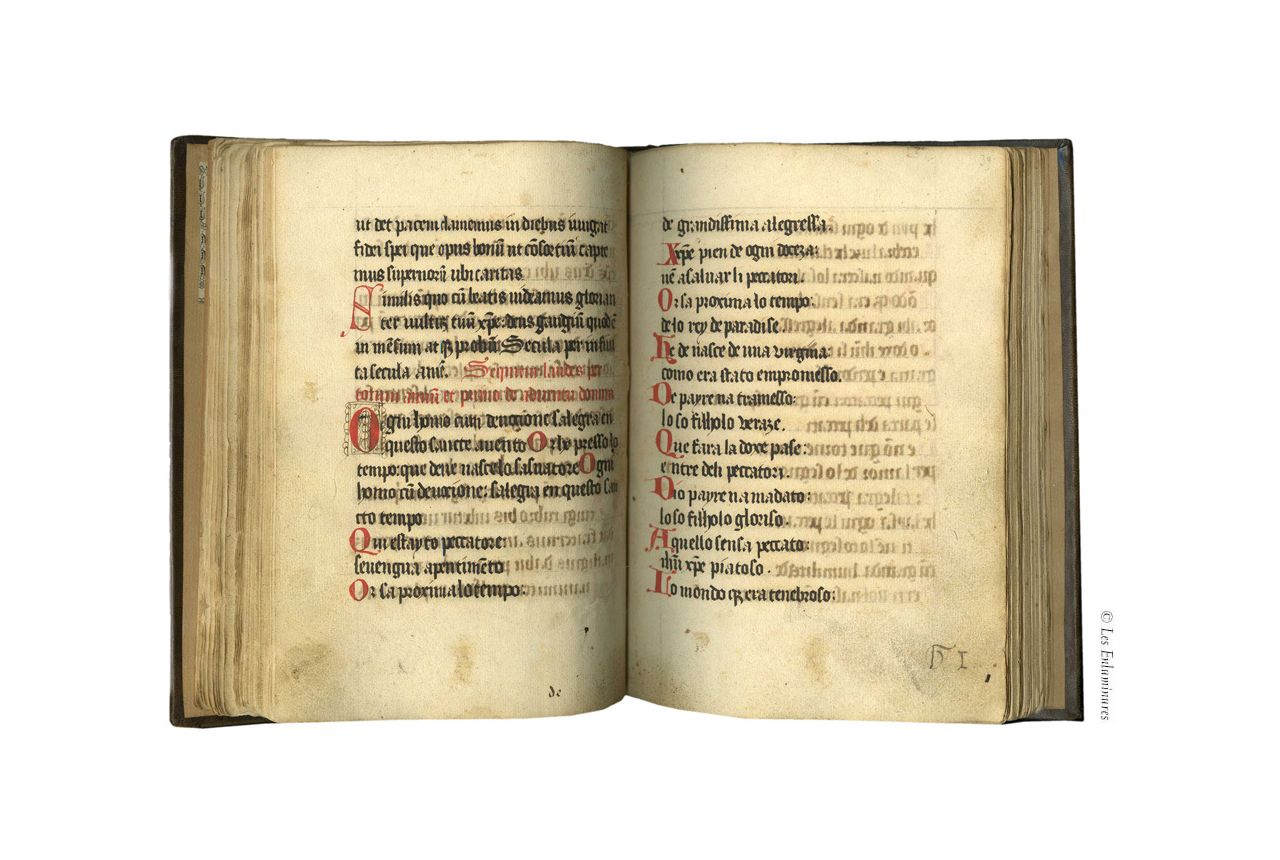 ut det pacem clamemus in diebus iungat
fidei spei que opus bonū ut cōsortiū capie
mus superiorū ubi caritas
Simul quoq cū beatis uideamus glorian
ter uultū tuū xpe deus gaudiū quod ē
in mēsum atq probū Secula per infini
ta secula amē. Sequntur laudes per
totum annū et primo de aduentu domini
Ogni homo cum deuogione salegra en
questo sancto auento Or he presso lo
tempo: que deue nascelo saluatore Ogni
homo cū deuocione: salegra en questo san
cto tempo
Qui estayto peccatore:
seuengua apentimēto
Or sa proxima lo tempo:
de
de grandissima alegressa.
Xpe pien de ogni doceza:
uē a saluar li peccatori.
Or sa proxima lo tempo:
de lo rey de paradise.
He de nasce de una uirgina:
como era stato empromesso.
De payre na tramesso:
lo so filholo veraze.
Que fara la doxe pase:
entre deli peccatori.
Dio payre na mādato:
lo so filholo glorioso.
Aquello sensa peccato:
ihū xpe piatoso.
Lo mondo q era tenebroso:
© Les Enluminures